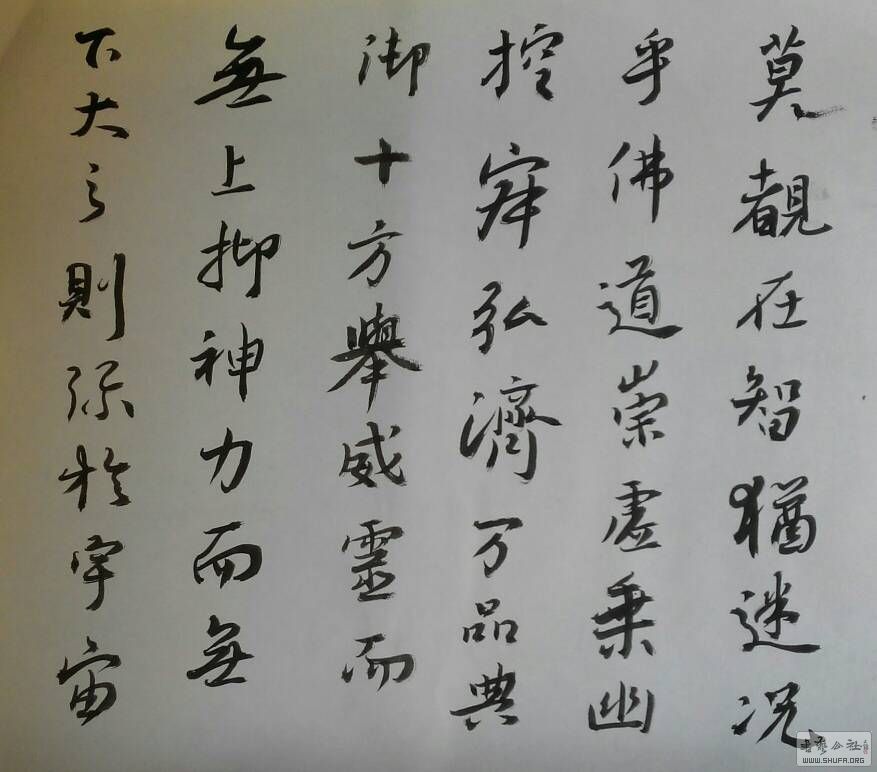 莫覩在智猶迷况
乎佛道崇虚乗幽
控寂弘濟万品典
御十方舉威靈而
無上抑神力而無
下大之則弥於宇宙
WWW.SHUFA.ORG